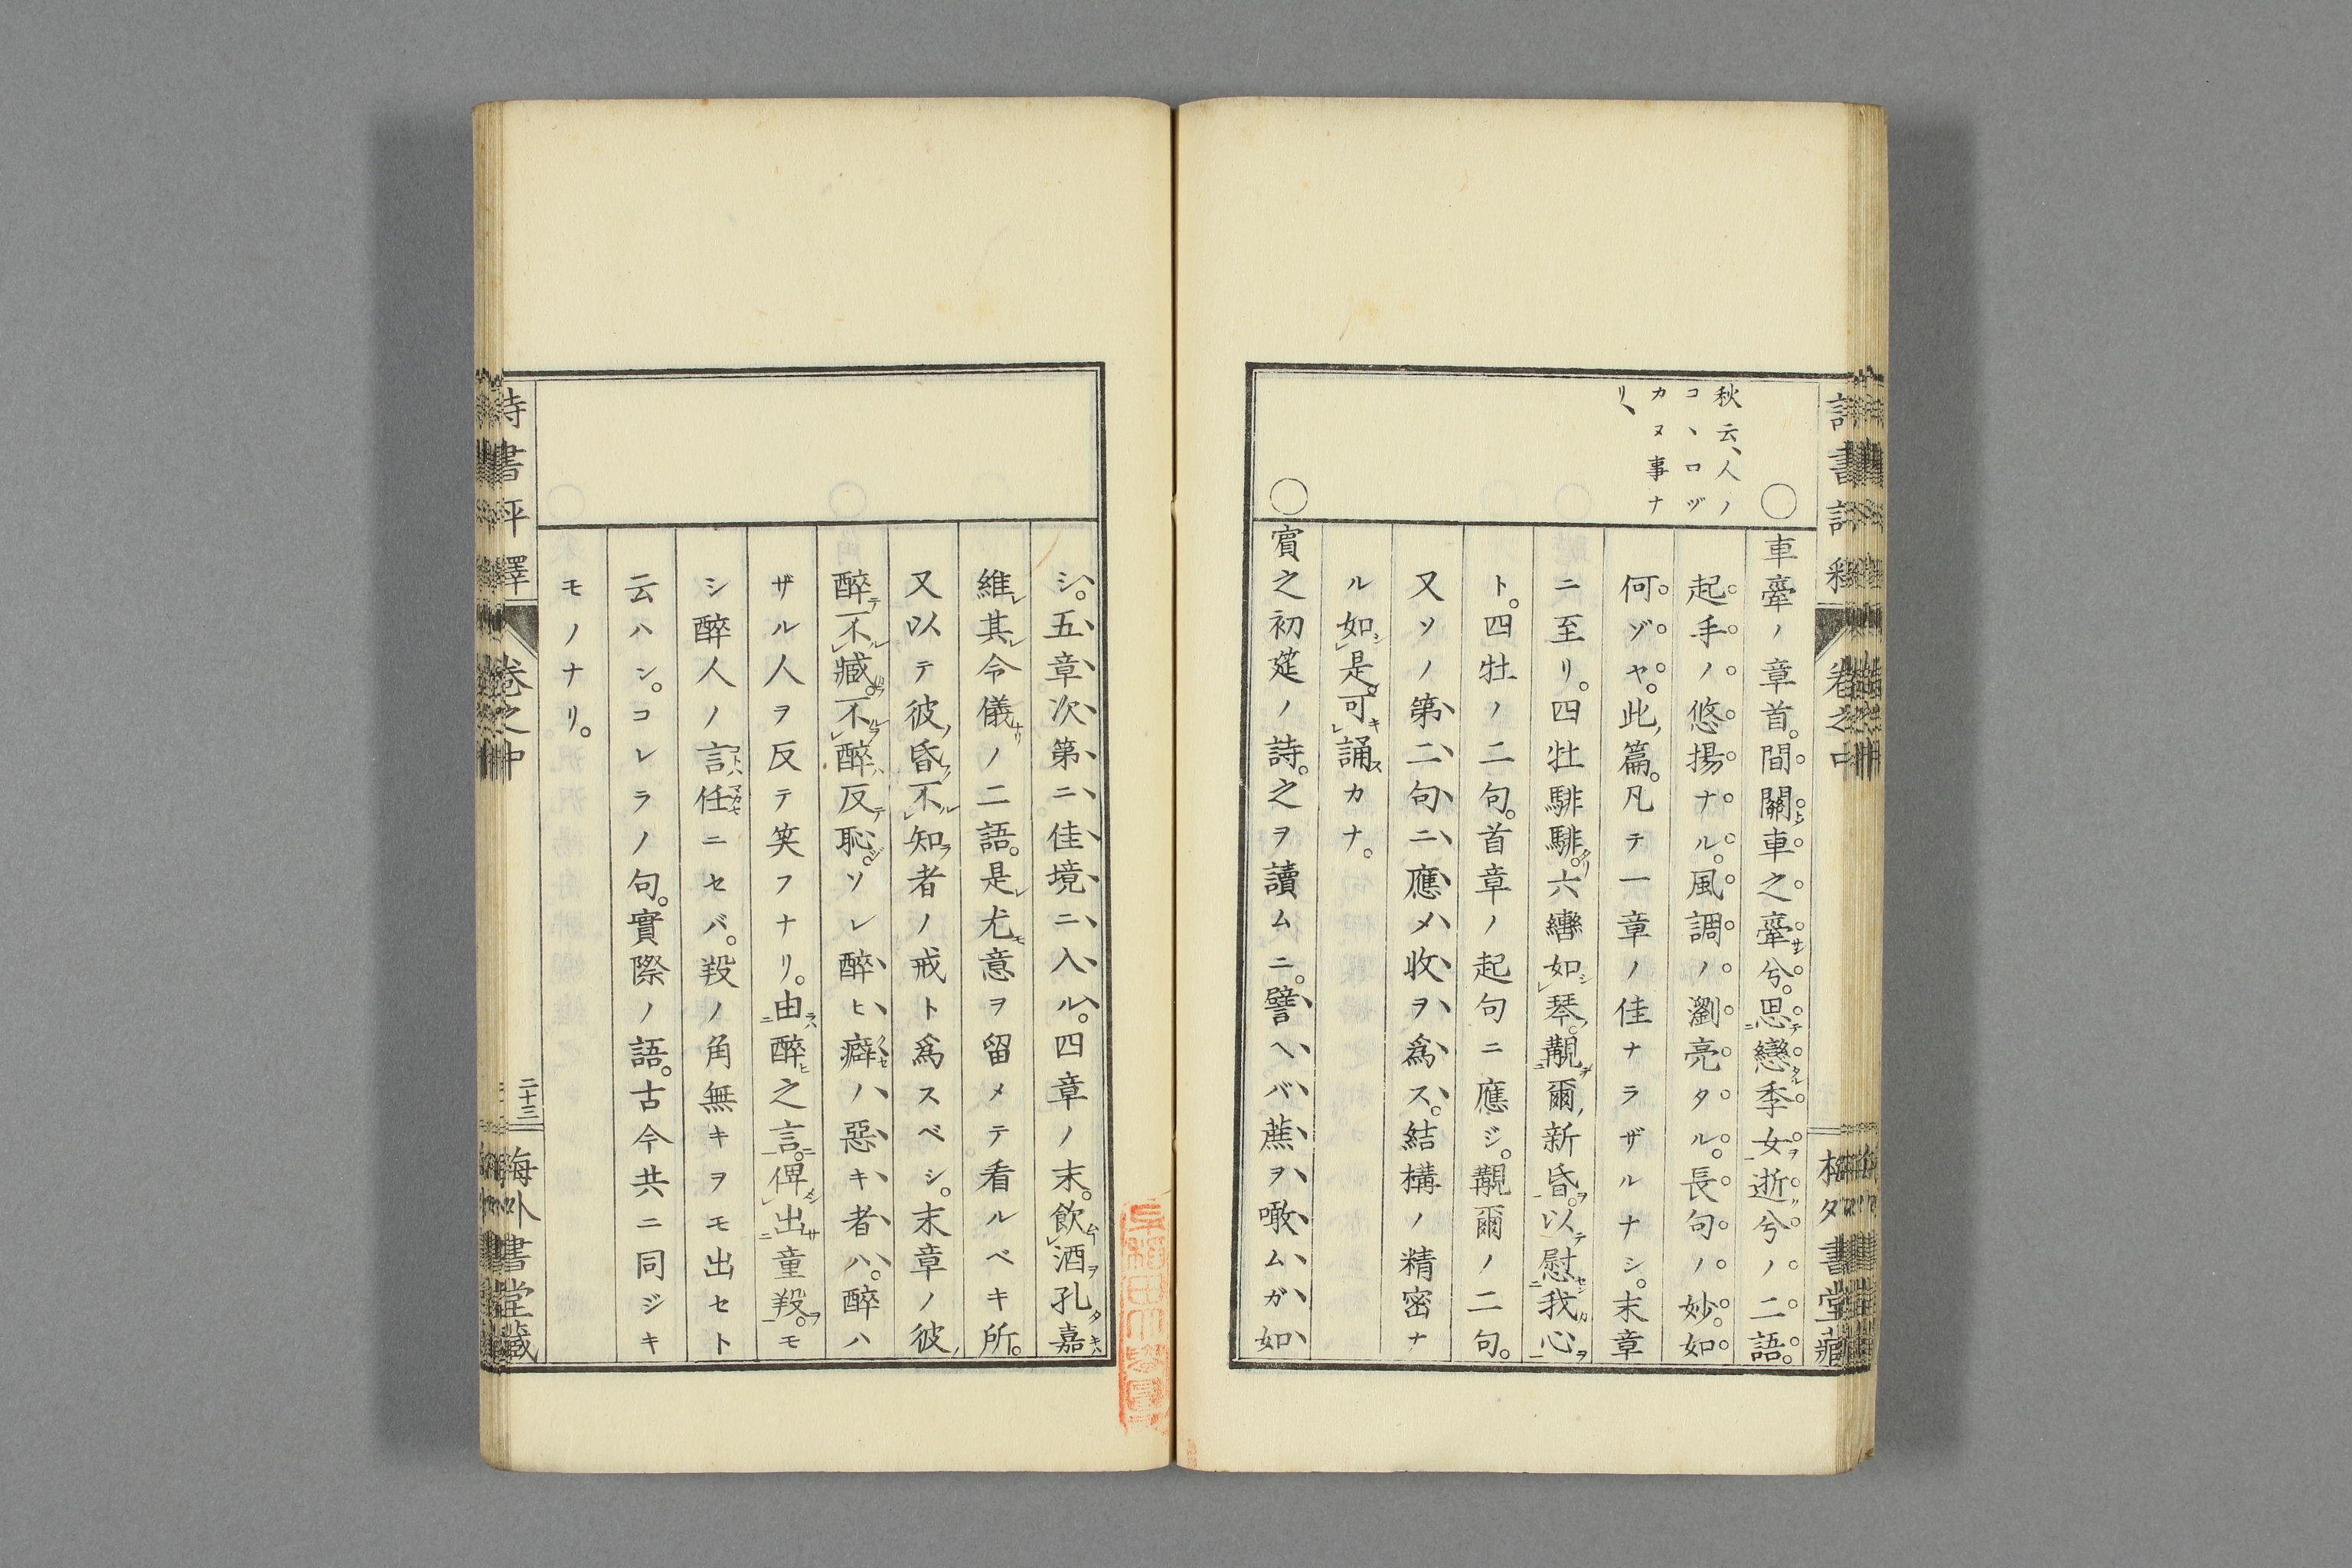 秋云、人ノ
コヽロヅ
カヌ事ナ
リ、
○車舝ノ章首。間關車之舝兮。思孌季女逝兮ノ二語。
起手ノ悠揚ナル。風調ノ瀏亮タル。長句ノ妙。如
何ゾヤ。此篇。凡テ一章ノ佳ナラザルナシ。末章
ニ至リ。四牡騑騑。六轡如琴。覯爾新昏。以慰我心
ト。四牡ノ二句。首章ノ起句ニ應ジ。覯爾ノ二句。
又ソノ第二句ニ應メ收ヲ爲ス。結構ノ精密ナ
ル如是。可誦カナ。
○賓之初筵ノ詩。之ヲ讀ムニ。譬ヘバ蔗ヲ噉ムガ如
シ。五章次第ニ佳境ニ入ル。四章ノ末。飲酒孔嘉
維其令儀ノ二語。是尤意ヲ留メテ看ルベキ所。
又以テ彼昏不知者ノ戒ト爲スベシ。末章ノ彼
醉不臧。不醉反恥。ソレ醉ヒ癖ノ惡キ者ハ。醉ハ
ザル人ヲ反テ笑フナリ。由醉之言。俾出童羖。モ
シ醉人ノ言任ニセバ。羖ノ角無キヲモ出セト
云ハン。コレラノ句。實際ノ語。古今共ニ同ジキ
モノナリ。
詩書評釋
卷之中
二十三
梅外書堂藏